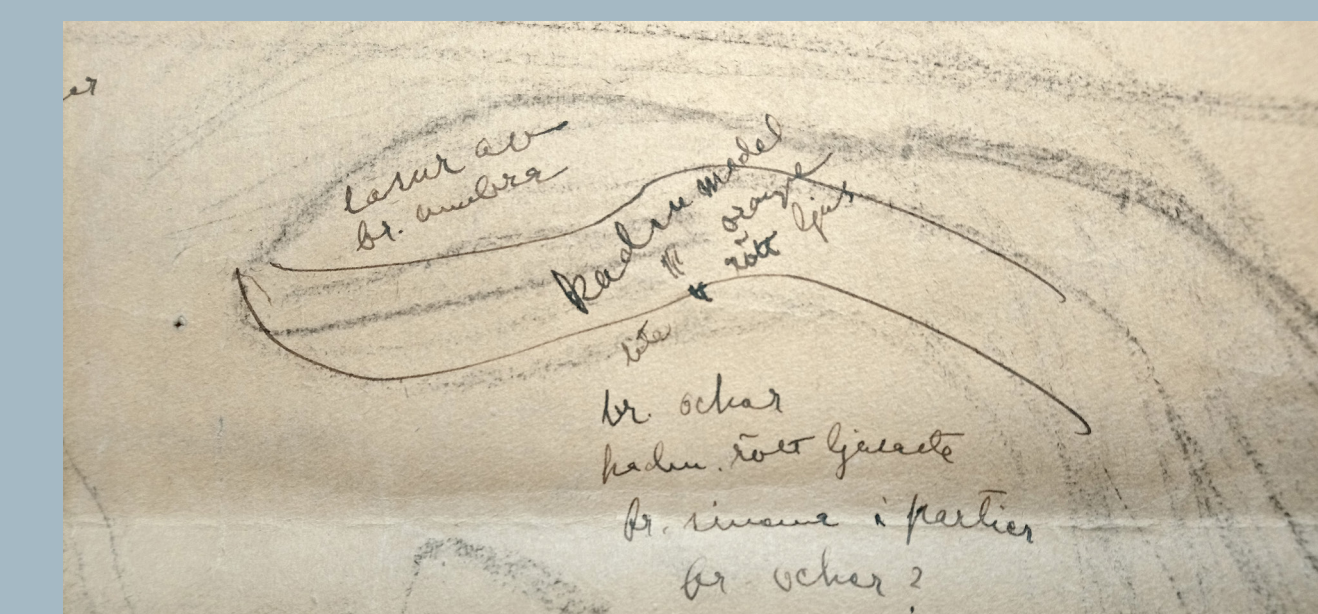 er
lasur av
br. umbra
kadmium medel
orange
rött ljust
lite
br. ockar
kadm. rött ljusaste
br. sienna i partier
br ockar ?